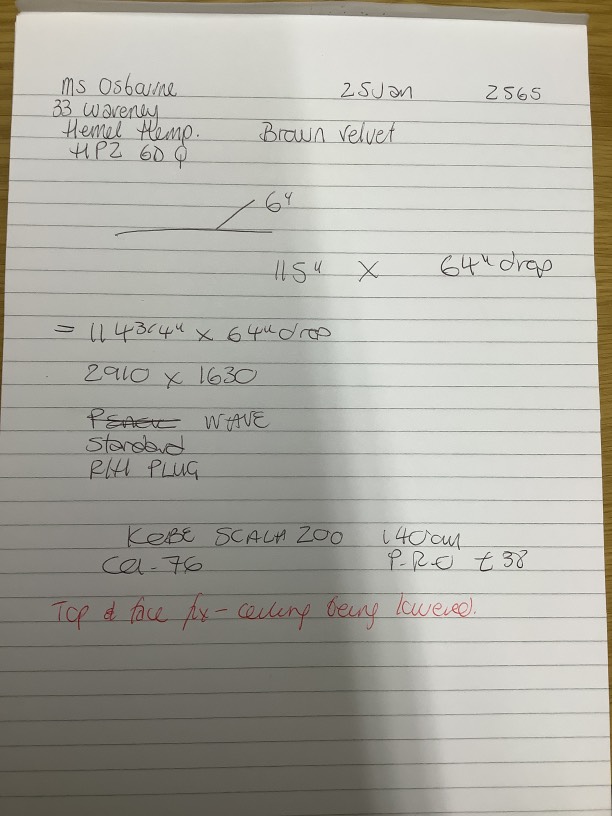 Ms Osbourne 25 Jan 2565
33 Waveney
Hemel Hemp. Brown velvet
HP2 6DQ
6"
115" X 64" drop
= 114 3/4" x 64" drop
2910 x 1630
WAVE
Standard
R/H PLUG
KOBE SCALA 200 140cm
Col-76 P.R.O £38
Top & face fix - ceiling being lowered.